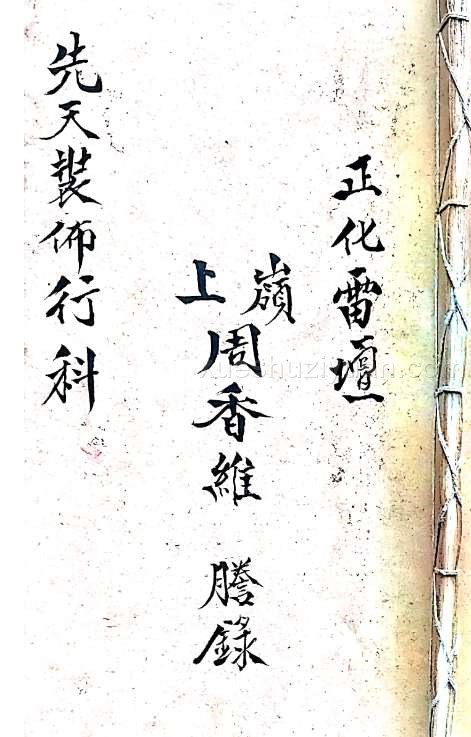 正化雷壇
嶺上周香維 謄錄
先天裝佈行科